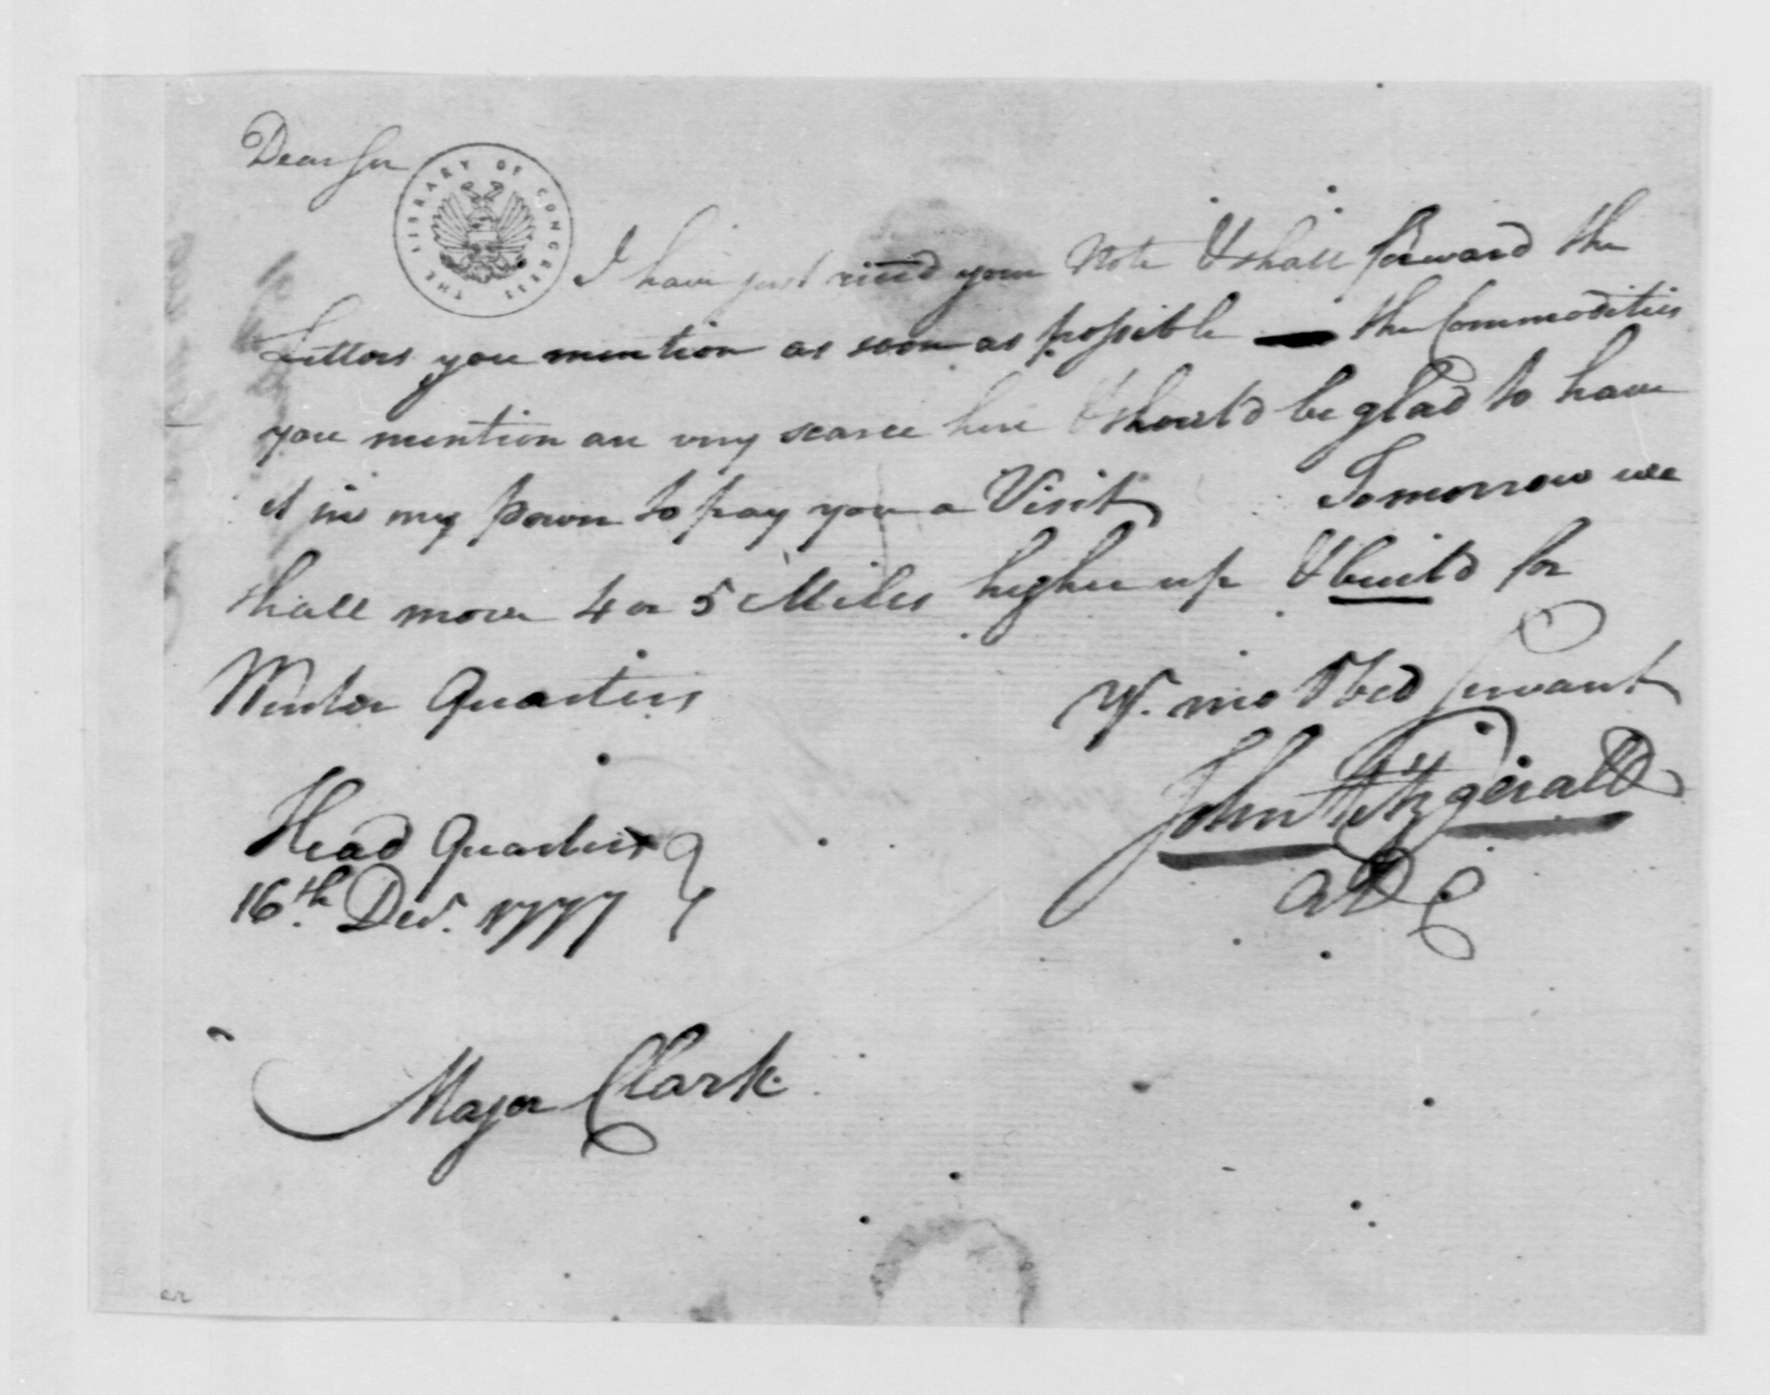 Dear Sir
THE LIBRARY OF CONGRESS
I have just rec̅d your Note & shall forward the
Letters you mention as soon as possible — the Commodities
you mention are very scarce here & should be glad to have
it in my power to pay you a Visit Tomorrow we
shall move 4 or 5 Miles higher up & build for
Winter Quarters
Yr. mo Obed Servant
John Fitzgerald
ADC
Head Quarters
16th. Decr. 1777
Major Clark